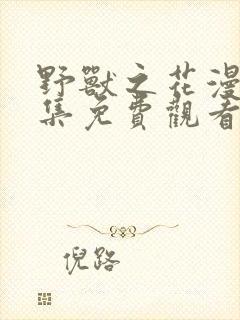 野獸之花漫
集免費觀看
倪路